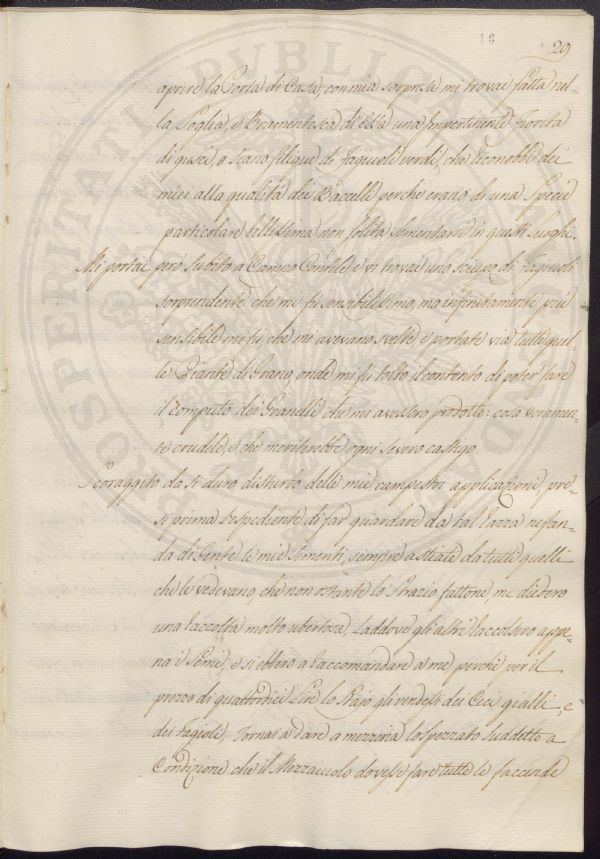 16 29
aprire la Porta di Casa, con mia sorpresa mi trovai fatta nel-
la Soglia, e Bramentesca di essa una Impertinente Fiorita
di gusci, o siano silique di Fagiuoli verdi, che riconobbi dei
miei alla qualità dei Baccelli perche erano di una Specie
particolare bellissima non solita sementarsi in questi Luoghi.
Mi portai però subito a Campo Gentile e vi trovai uno sciupo di Fagiuoli
sorprendente che mi fu sensibilissimo, ma infinitamente più
sensibile mi fu, che mi avevano svelte e portate via tutte quel-
le Piante di Grano, onde mi fu tolto il contento di poter fare
il computo dei Granelli che mi avessero prodotto: cosa veramen-
te crudele, e che meriterebbe ogni severo castigo.
Scoraggito da si duro disturbo delle mie campestri applicazioni, pre-
si prima l'espediente di far guardare da tal razza nefan-
da di Gente le mie sementi, sempre astiate da tutti quelli
che le vedevano, che non ostante lo strazio fattone, mi diedero
una raccolta molto ubertosa, laddove gli altri raccolsero appe-
na i Semi, e si ebbero a raccomandare a me perché per il
prezzo di quattordici Lire lo Stajo gli vendessi dei Ceci gialli, e
dei Fagioli. Tornai a dare a mezzeria lo spezzato suddetto a
Condizione che il Mezzaiuolo dovesse fare tutte le faccende
PROSPERITATI PUBLICAE AUGENDAE